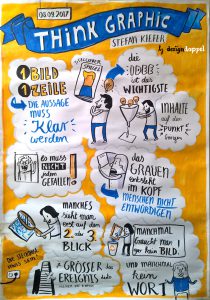 08.09.2017
THINK GRAPHIC
STEFAN KIEFER
by designdoppel
1 BILD
1 ZEILE
DIE AUSSAGE
MUSS
Klar
werden
die
IDEE
ist das
WICHTIGSTE
INHALTE
auf den
PUNKT
bringen
es muss
NICHT
jedem
GEFALLEN!
DAS
GRAUEN
entsteht
IM KOPF
MENSCHEN NICHT
ENTWÜRDIGEN
MANCHES
sieht man
erst auf den
2.
BLICK
MANCHMAL
braucht man
kein BILD.
JE GRÖSSER das
EREIGNIS
UND MANCHMAL
kein
WORT